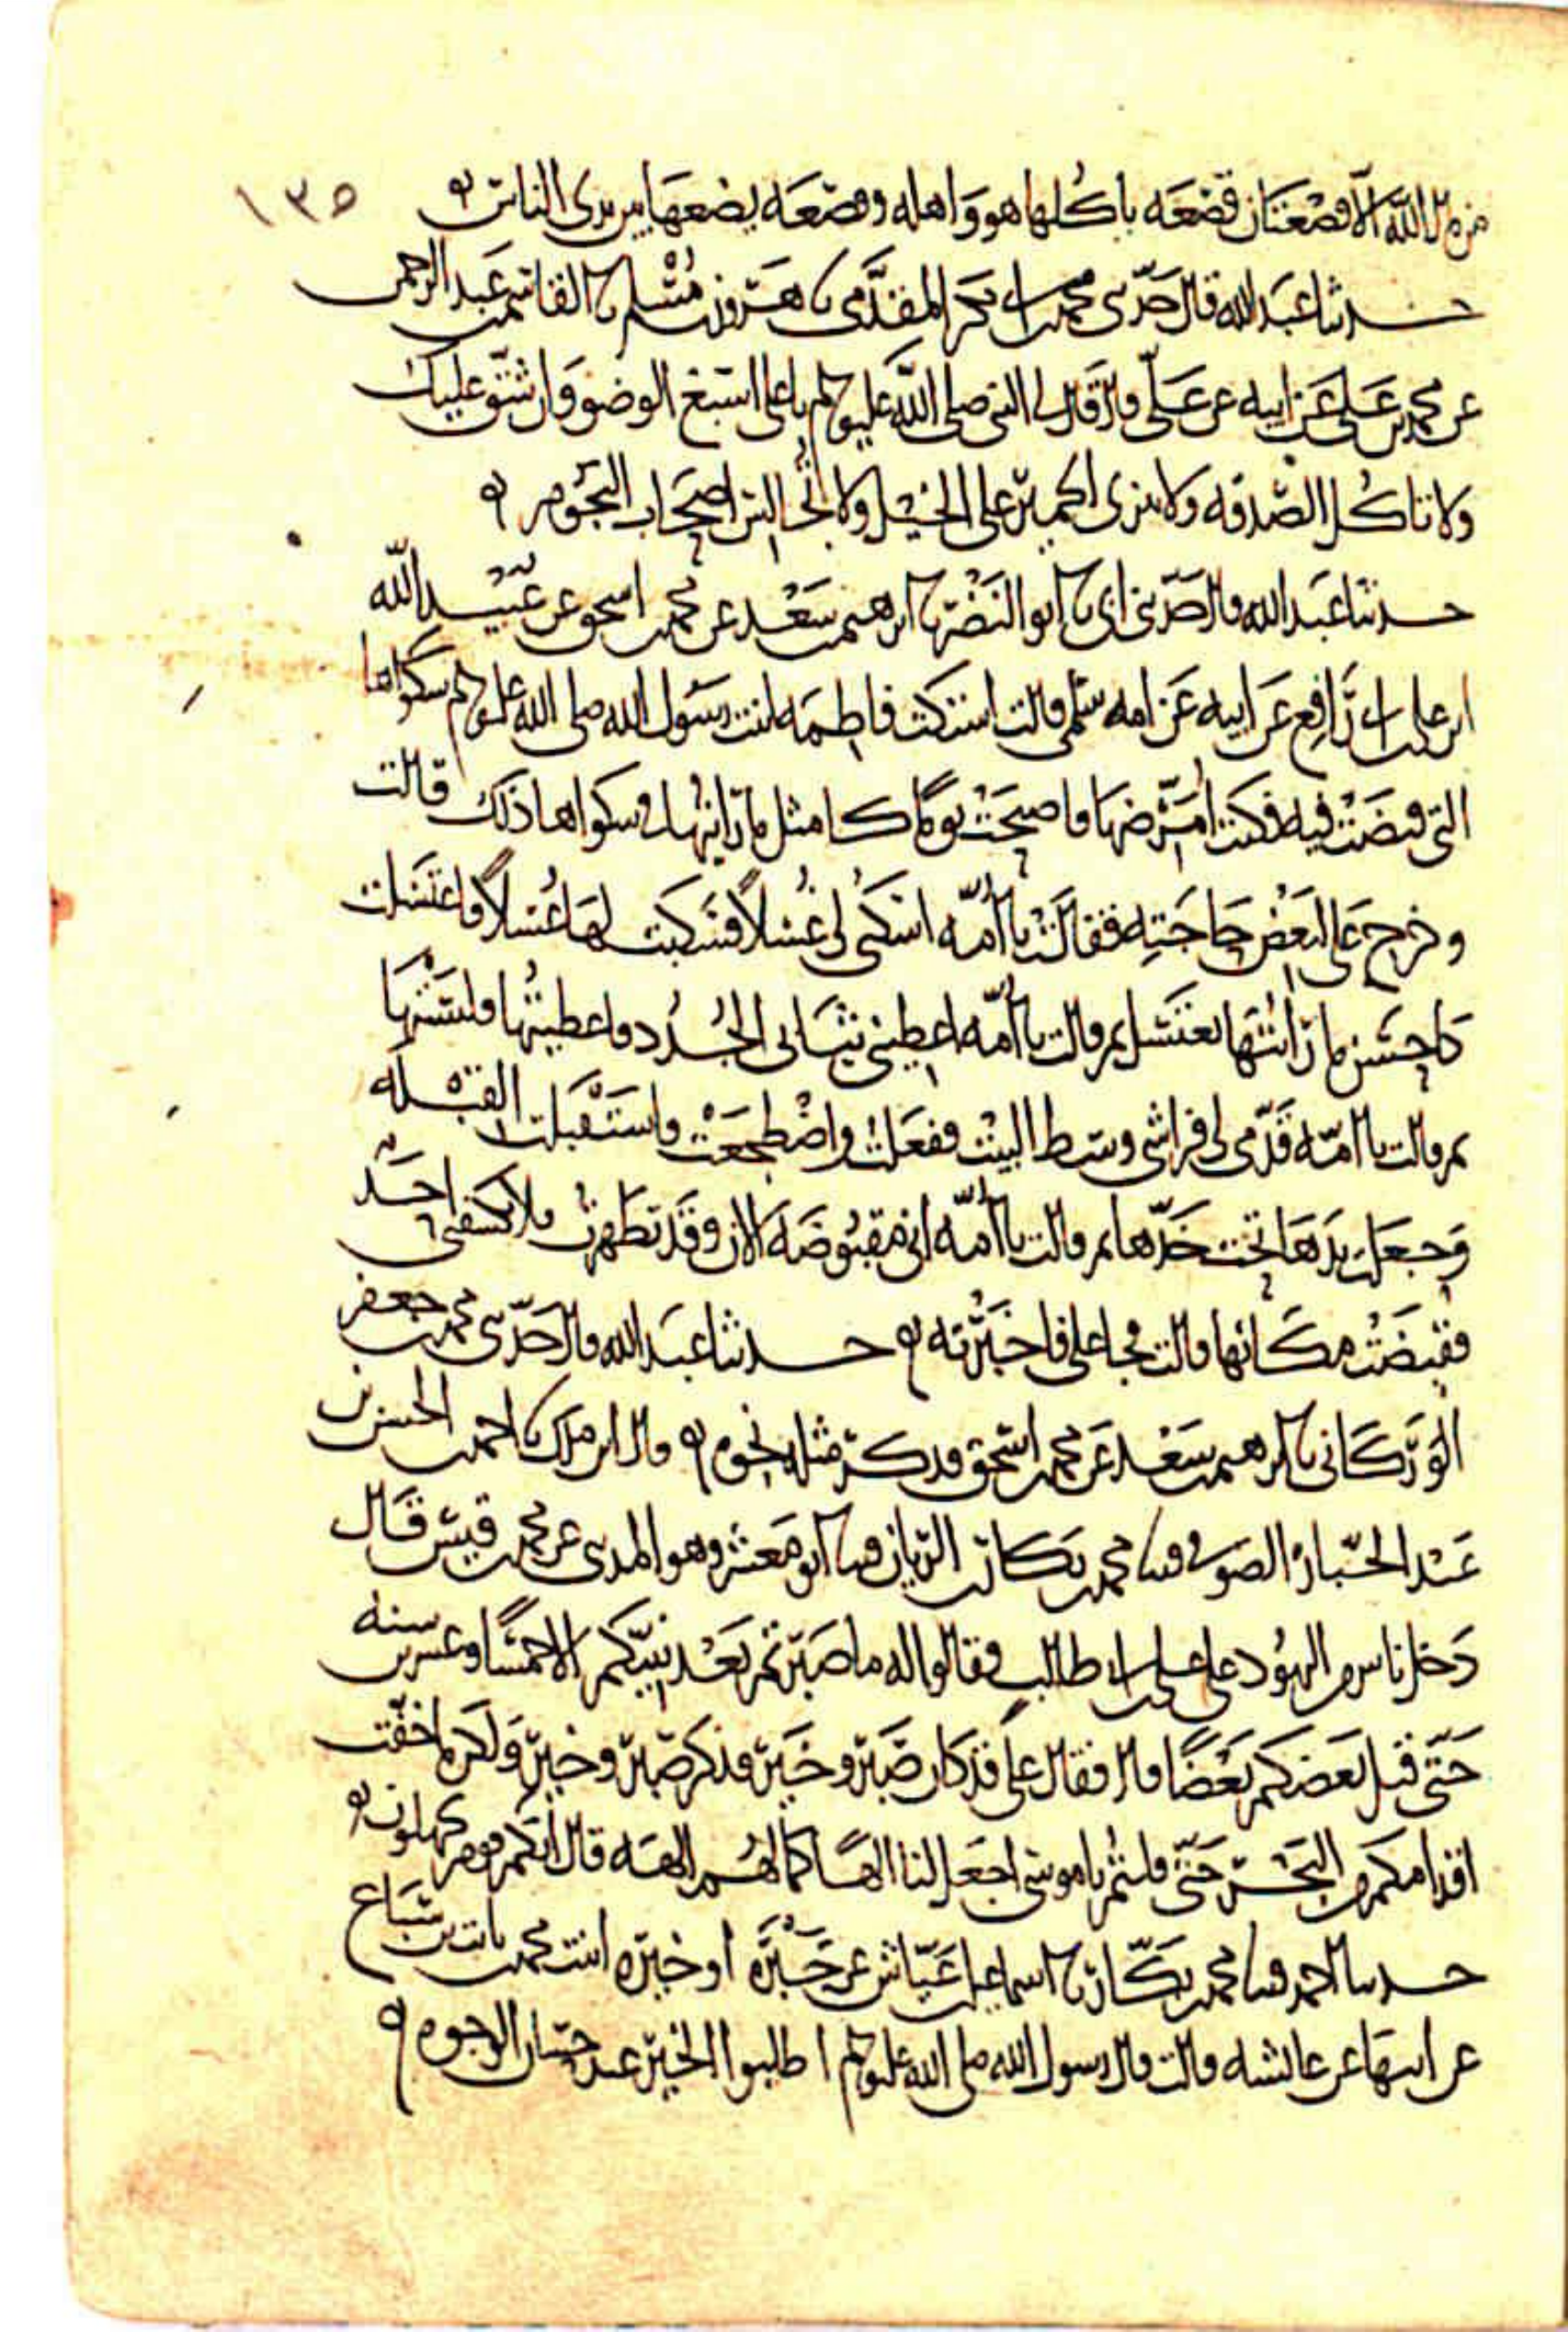 من مال الله الا قصعتان قصعه ياكلها هو واهله وقصعه يضعها بين يدى الناس ١٣٥
حدثنا عبد الله قال حدثنى محمد بن ابى بكر المقدمى نا هرون بن مسلم نا القاسم بن عبد الرحمن
عن محمد بن على عن ابيه عن على قال قال لى النبى صلى الله عليه وسلم يا على اسبغ الوضو وان شق عليك
ولا تاكل الصدقه ولا تنزى الحمير على الخيل ولا تجالس اصحاب النجوم
حدثنا عبد الله قال حدثنى ابى نا ابو النضر نا ابرهيم بن سعد عن محمد بن اسحق عن عبيد الله
ابن على بن ابى رافع عن ابيه عن امه سلمى قالت اشتكت فاطمه ابنت رسول الله صلى الله عليه وسلم شكواها
التى قبضت فيه فكنت امرضها فاصبحت يوما كامثل ما رايتها فى شكواها ذلك قالت
وخرج على لبعض حاجته فقالت يا امه اسكبى لى غسلا فسكبت لها غسلا فاغتسلت
كاحسن ما رايتها تغتسل ثم قالت يا امه اعطينى ثيابى الجدد فاعطيتها فلبستها
ثم قالت يا امه قدمى لى فراشى وسط البيت ففعلت واضطجعت واستقبلت القبله
وجعلت يدها تحت خدها ثم قالت يا امه انى مقبوضه الان وقد تطهرت فلا يكشفنى احد
فقبضت مكانها قالت فجا على فاخبرته حدثنا عبد الله قال حدثنى محمد بن جعفر
الوركانى نا ابرهيم بن سعد عن محمد بن اسحق فذكر مثله نحوه قال ابن ملك نا احمد بن الحسن بن
عبد الجبار الصوفى قثنا محمد بن بكار بن الريان قثنا ابو معشر وهو المدنى عن محمد بن قيس قال
دخل ناس من اليهود على على بن ابى طالب فقالوا له ما صبرتم بعد نبيكم الا خمسا وعشرين سنه
حتى قتل بعضكم بعضا قال فقال على قد كان صبر وخير قد كان صبر وخير ولكن ما جفت
اقدامكم من البحر حتى قلتم يا موسى اجعل لنا الها كما لهم الهه قال انكم قوم تجهلون
حدثنا احمد قثنا محمد بن بكار نا اسماعيل بن عياش عن جبره او خيره ابنت محمد بن ثابت بن سباع
عن ابيها عن عائشه قالت قال رسول الله صلى الله عليه وسلم اطلبوا الخير عند حسان الوجوه